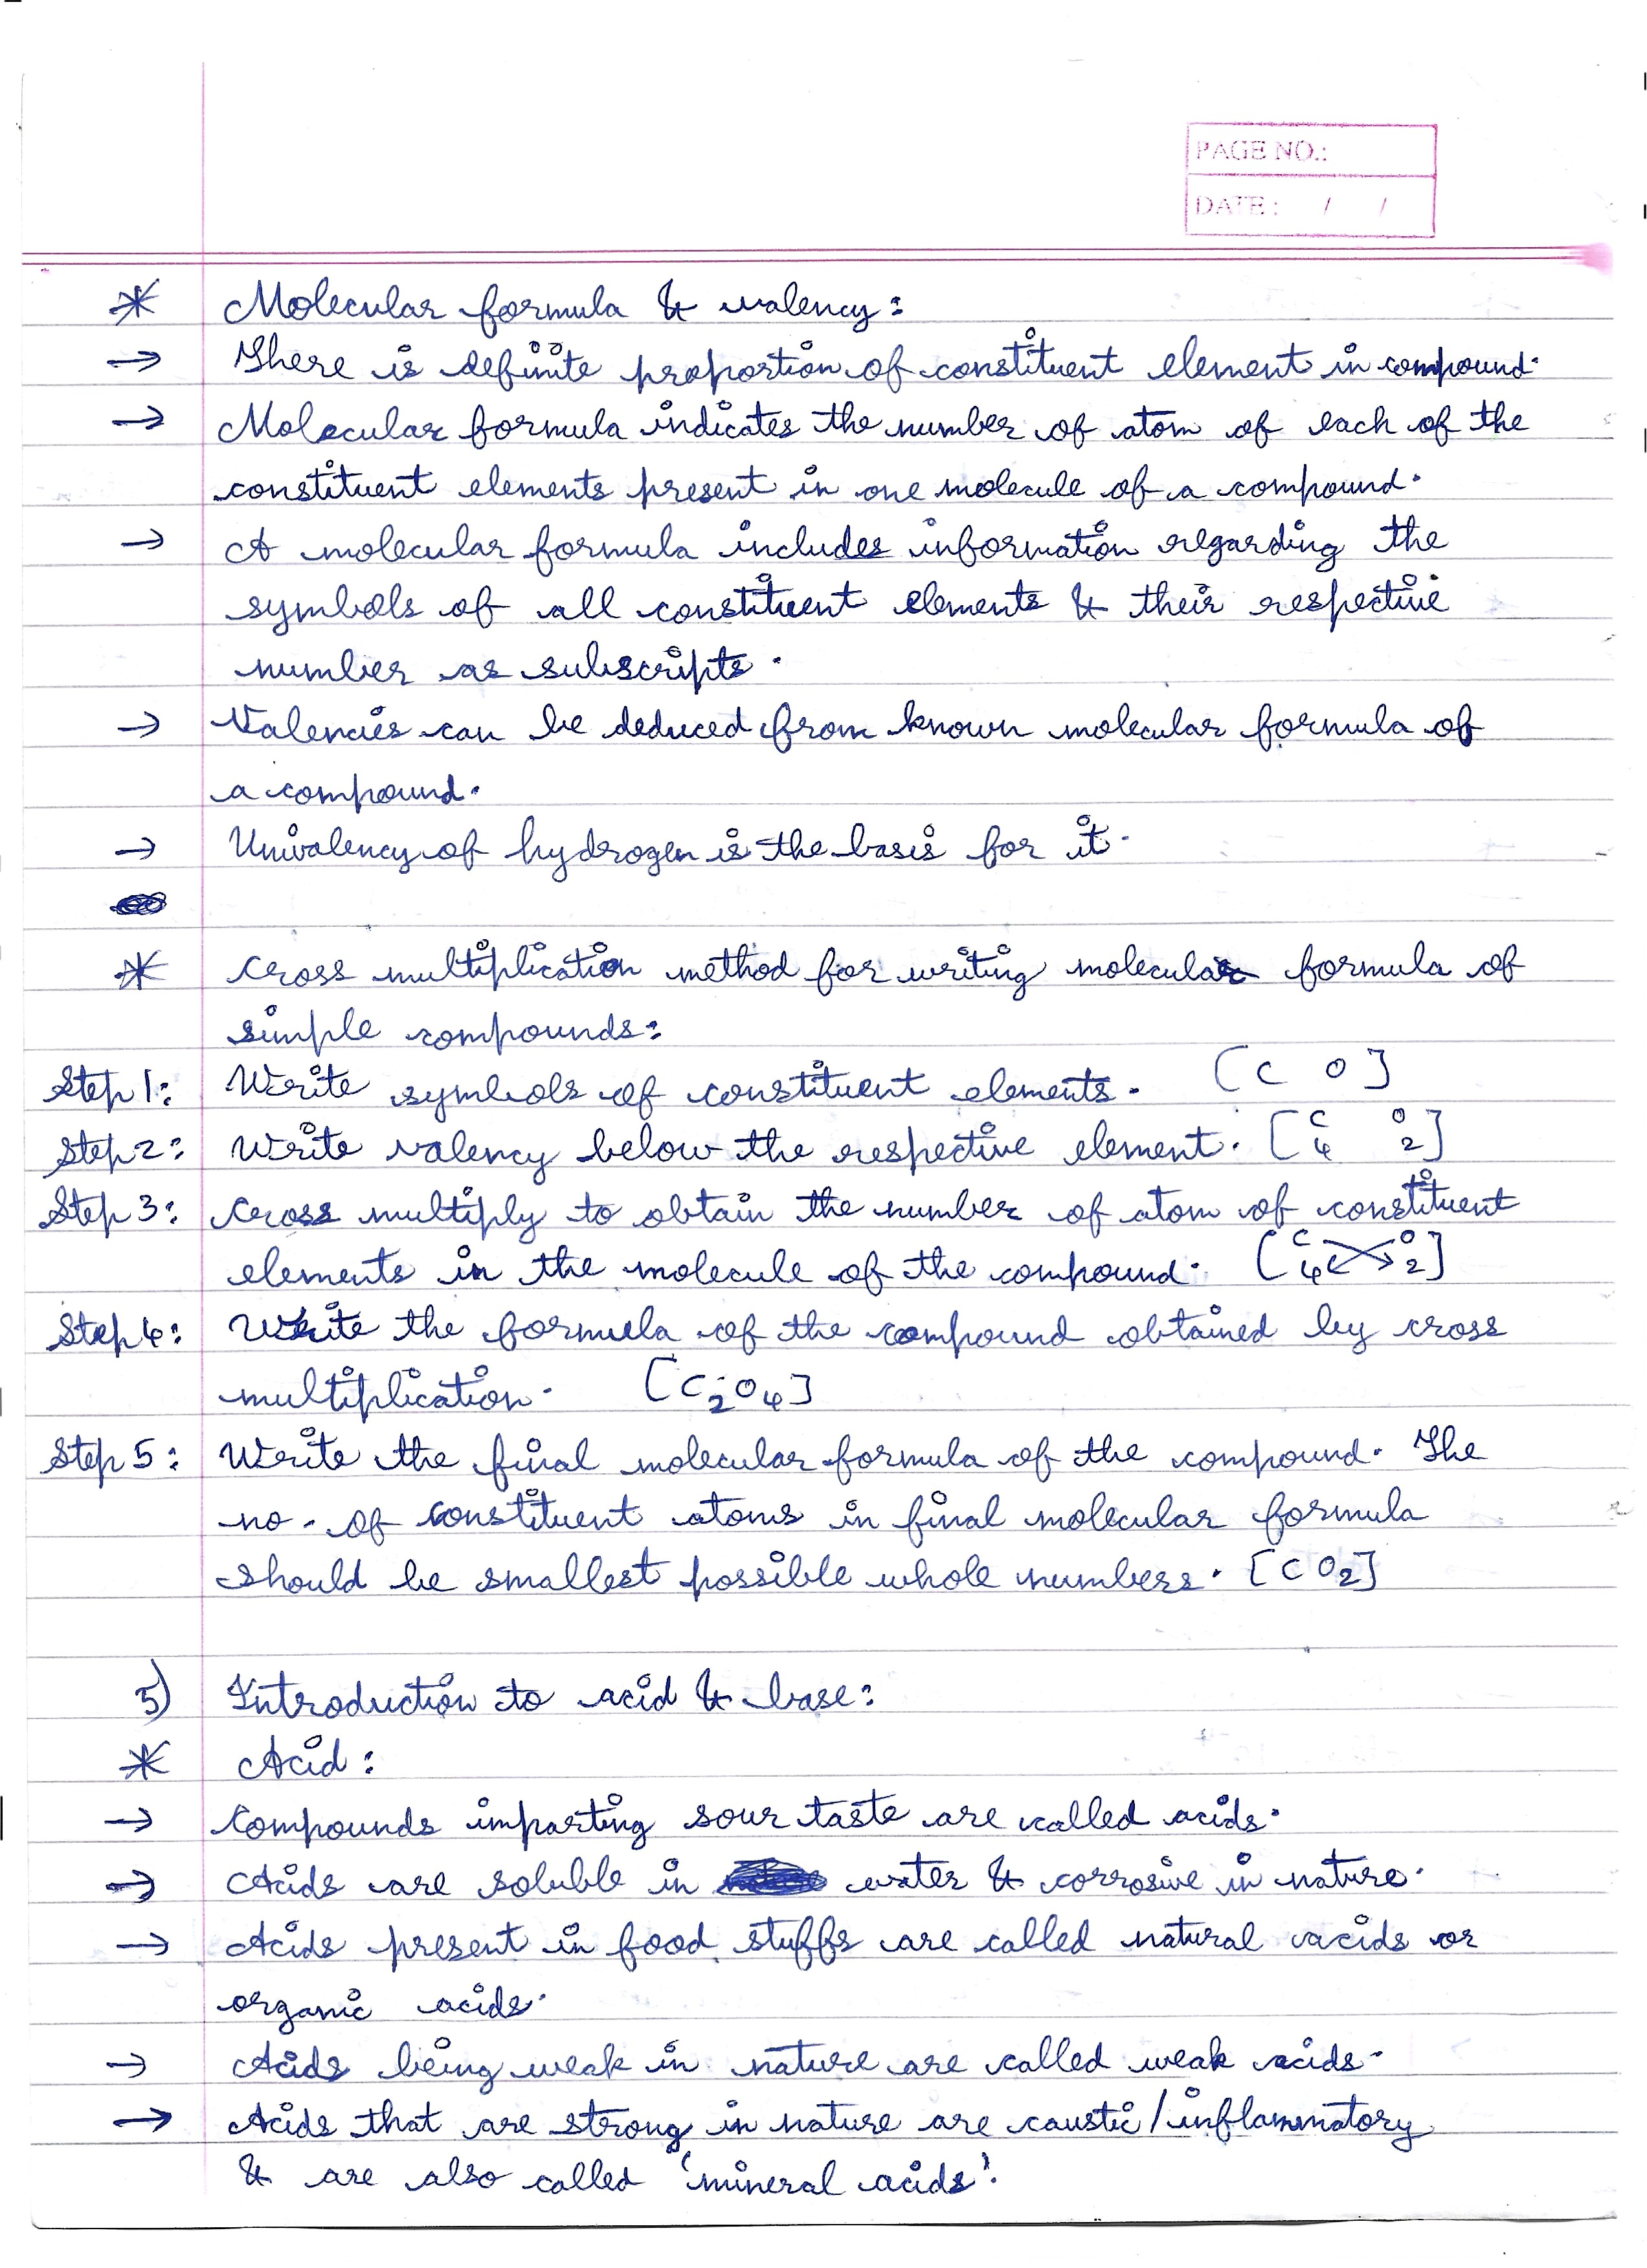 PAGE NO.:
DATE: / /
* Molecular formula & valency:
→ There is definite proportion of constituent element in compound.
→ Molecular formula indicates the number of atom of each of the
constituent elements present in one molecule of a compound.
→ A molecular formula includes information regarding the
symbols of all constituent elements & their respective
number as subscripts.
→ Valencies can be deduced from known molecular formula of
a compound.
→ Univalency of hydrogen is the basis for it.
* Cross multiplication method for writing molecular formula of
simple compounds:
Step 1: Write symbols of constituent elements. [C O]
Step 2: Write valency below the respective element. [C 4 O 2]
Step 3: Cross multiply to obtain the number of atom of constituent
elements in the molecule of the compound. [C 4 O 2]
Step 4: Write the formula of the compound obtained by cross
multiplication. [C₂O₄]
Step 5: Write the final molecular formula of the compound. The
no. of constituent atoms in final molecular formula
should be smallest possible whole numbers. [CO₂]
5) Introduction to acid & base:
* Acid:
→ Compounds imparting sour taste are called acids.
→ Acids are soluble in water & corrosive in nature.
→ Acids present in food stuffs are called natural acids or
organic acids.
→ Acids being weak in nature are called weak acids.
→ Acids that are strong in nature are caustic/inflammatory
& are also called 'mineral acids'.